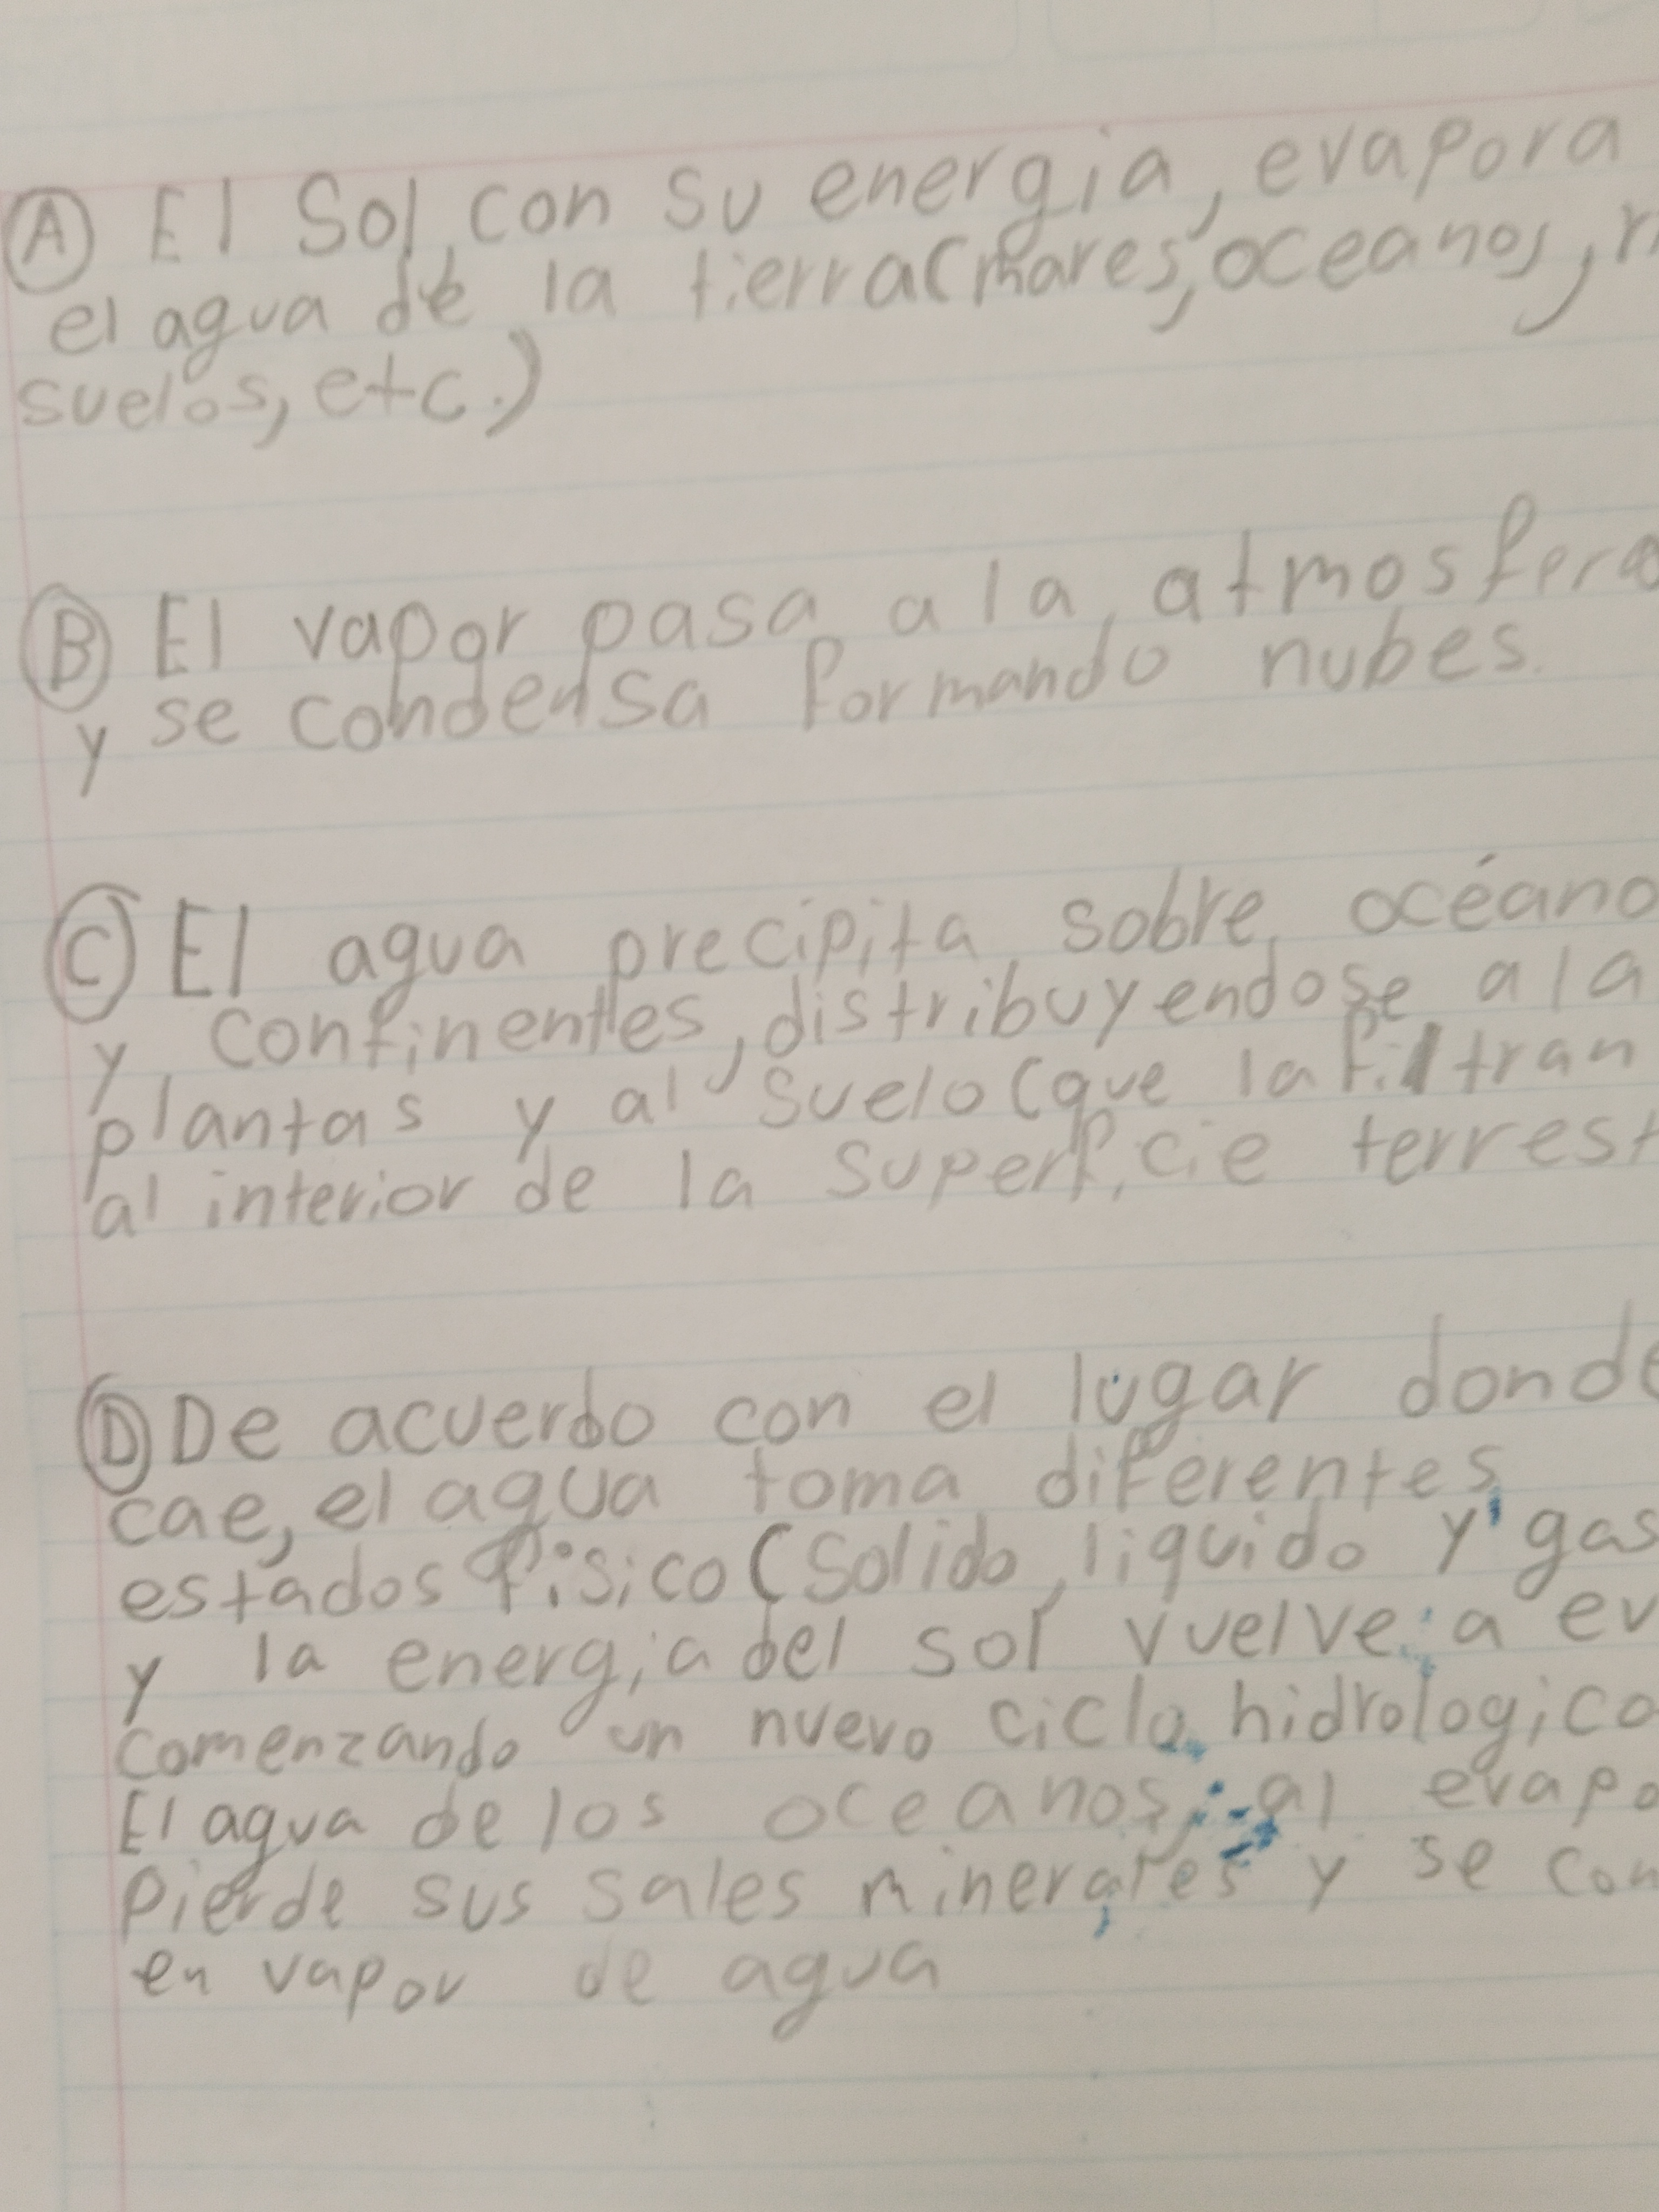 Ⓐ El Sol, con su energia, evapora
el agua de la tierra (mares, oceanos, r
suelos, etc.)
Ⓑ El vapor pasa a la atmosfera
y se condensa formando nubes.
Ⓒ El agua precipita sobre océano
y continentes, distribuyendose a la
plantas y al suelo (que la filtran
al interior de la superficie terrest
Ⓓ De acuerdo con el lugar donde
cae, el agua toma diferentes
estados fisico (Solido, liquido y gas
y la energia del sol vuelve a ev
comenzando un nuevo ciclo hidrologico
El agua de los oceanos, al evapo
pierde sus sales minerales y se con
en vapor de agua